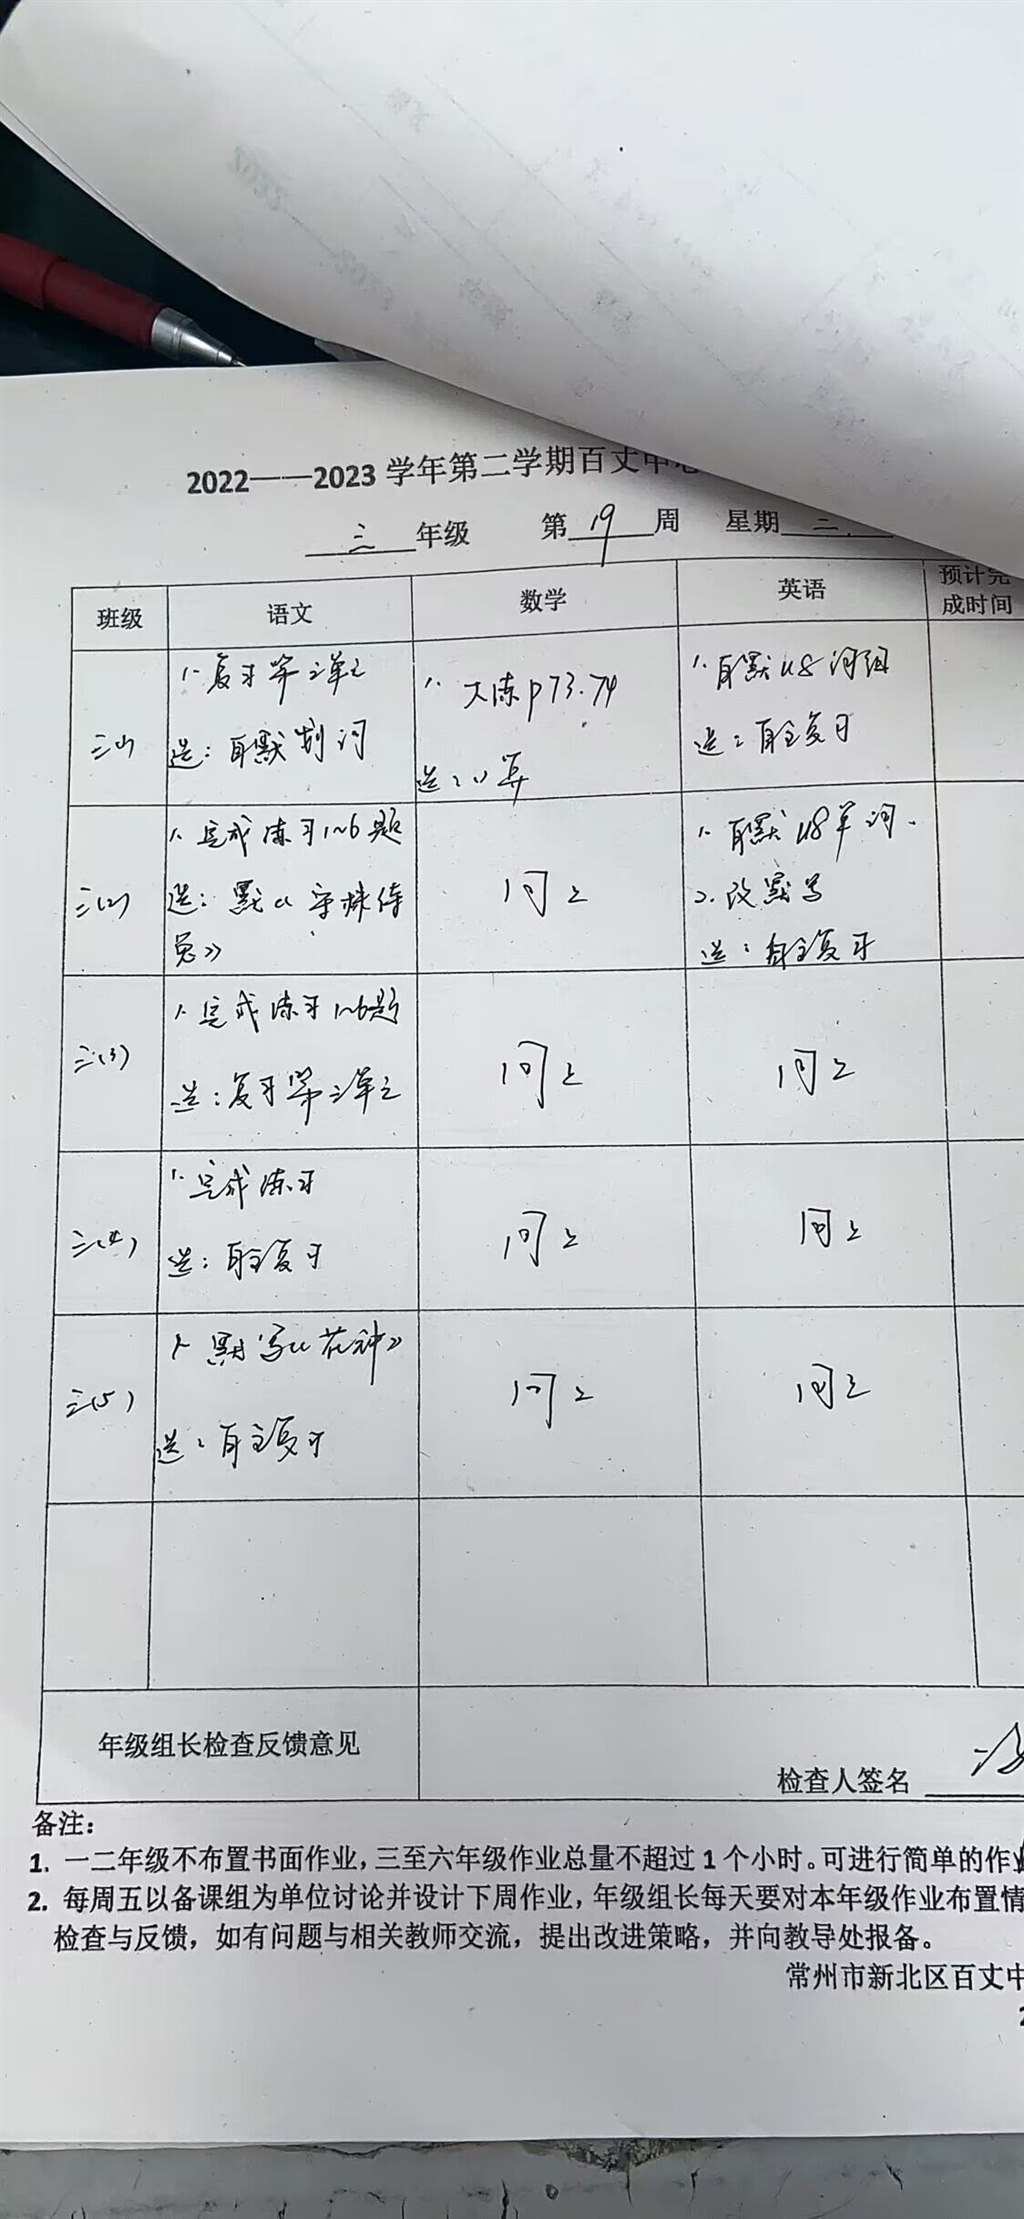 2022——2023学年第二学期百丈中心
三 年级 第 19 周 星期 二
班级 语文 数学 英语 预计完
成时间
三(1)
1. 复习第三单元
选:自默划词
1. 大练p73.74
选:口算
1. 自默U8词组
选:自主复习
三(2)
1. 完成练习1~6题
选:默《守株待
兔》
同上
1. 自默U8单词.
2. 改默写
选:自主复习
三(3)
1. 完成练习1~6题
选:复习第三单元
同上
同上
三(4)
1. 完成练习
选:自主复习
同上
同上
三(5)
1. 默写《花钟》
选:自主复习
同上
同上
年级组长检查反馈意见
检查人签名
备注:
1. 一二年级不布置书面作业,三至六年级作业总量不超过1个小时。可进行简单的作
2. 每周五以备课组为单位讨论并设计下周作业,年级组长每天要对本年级作业布置情
检查与反馈,如有问题与相关教师交流,提出改进策略,并向教导处报备。
常州市新北区百丈中
2